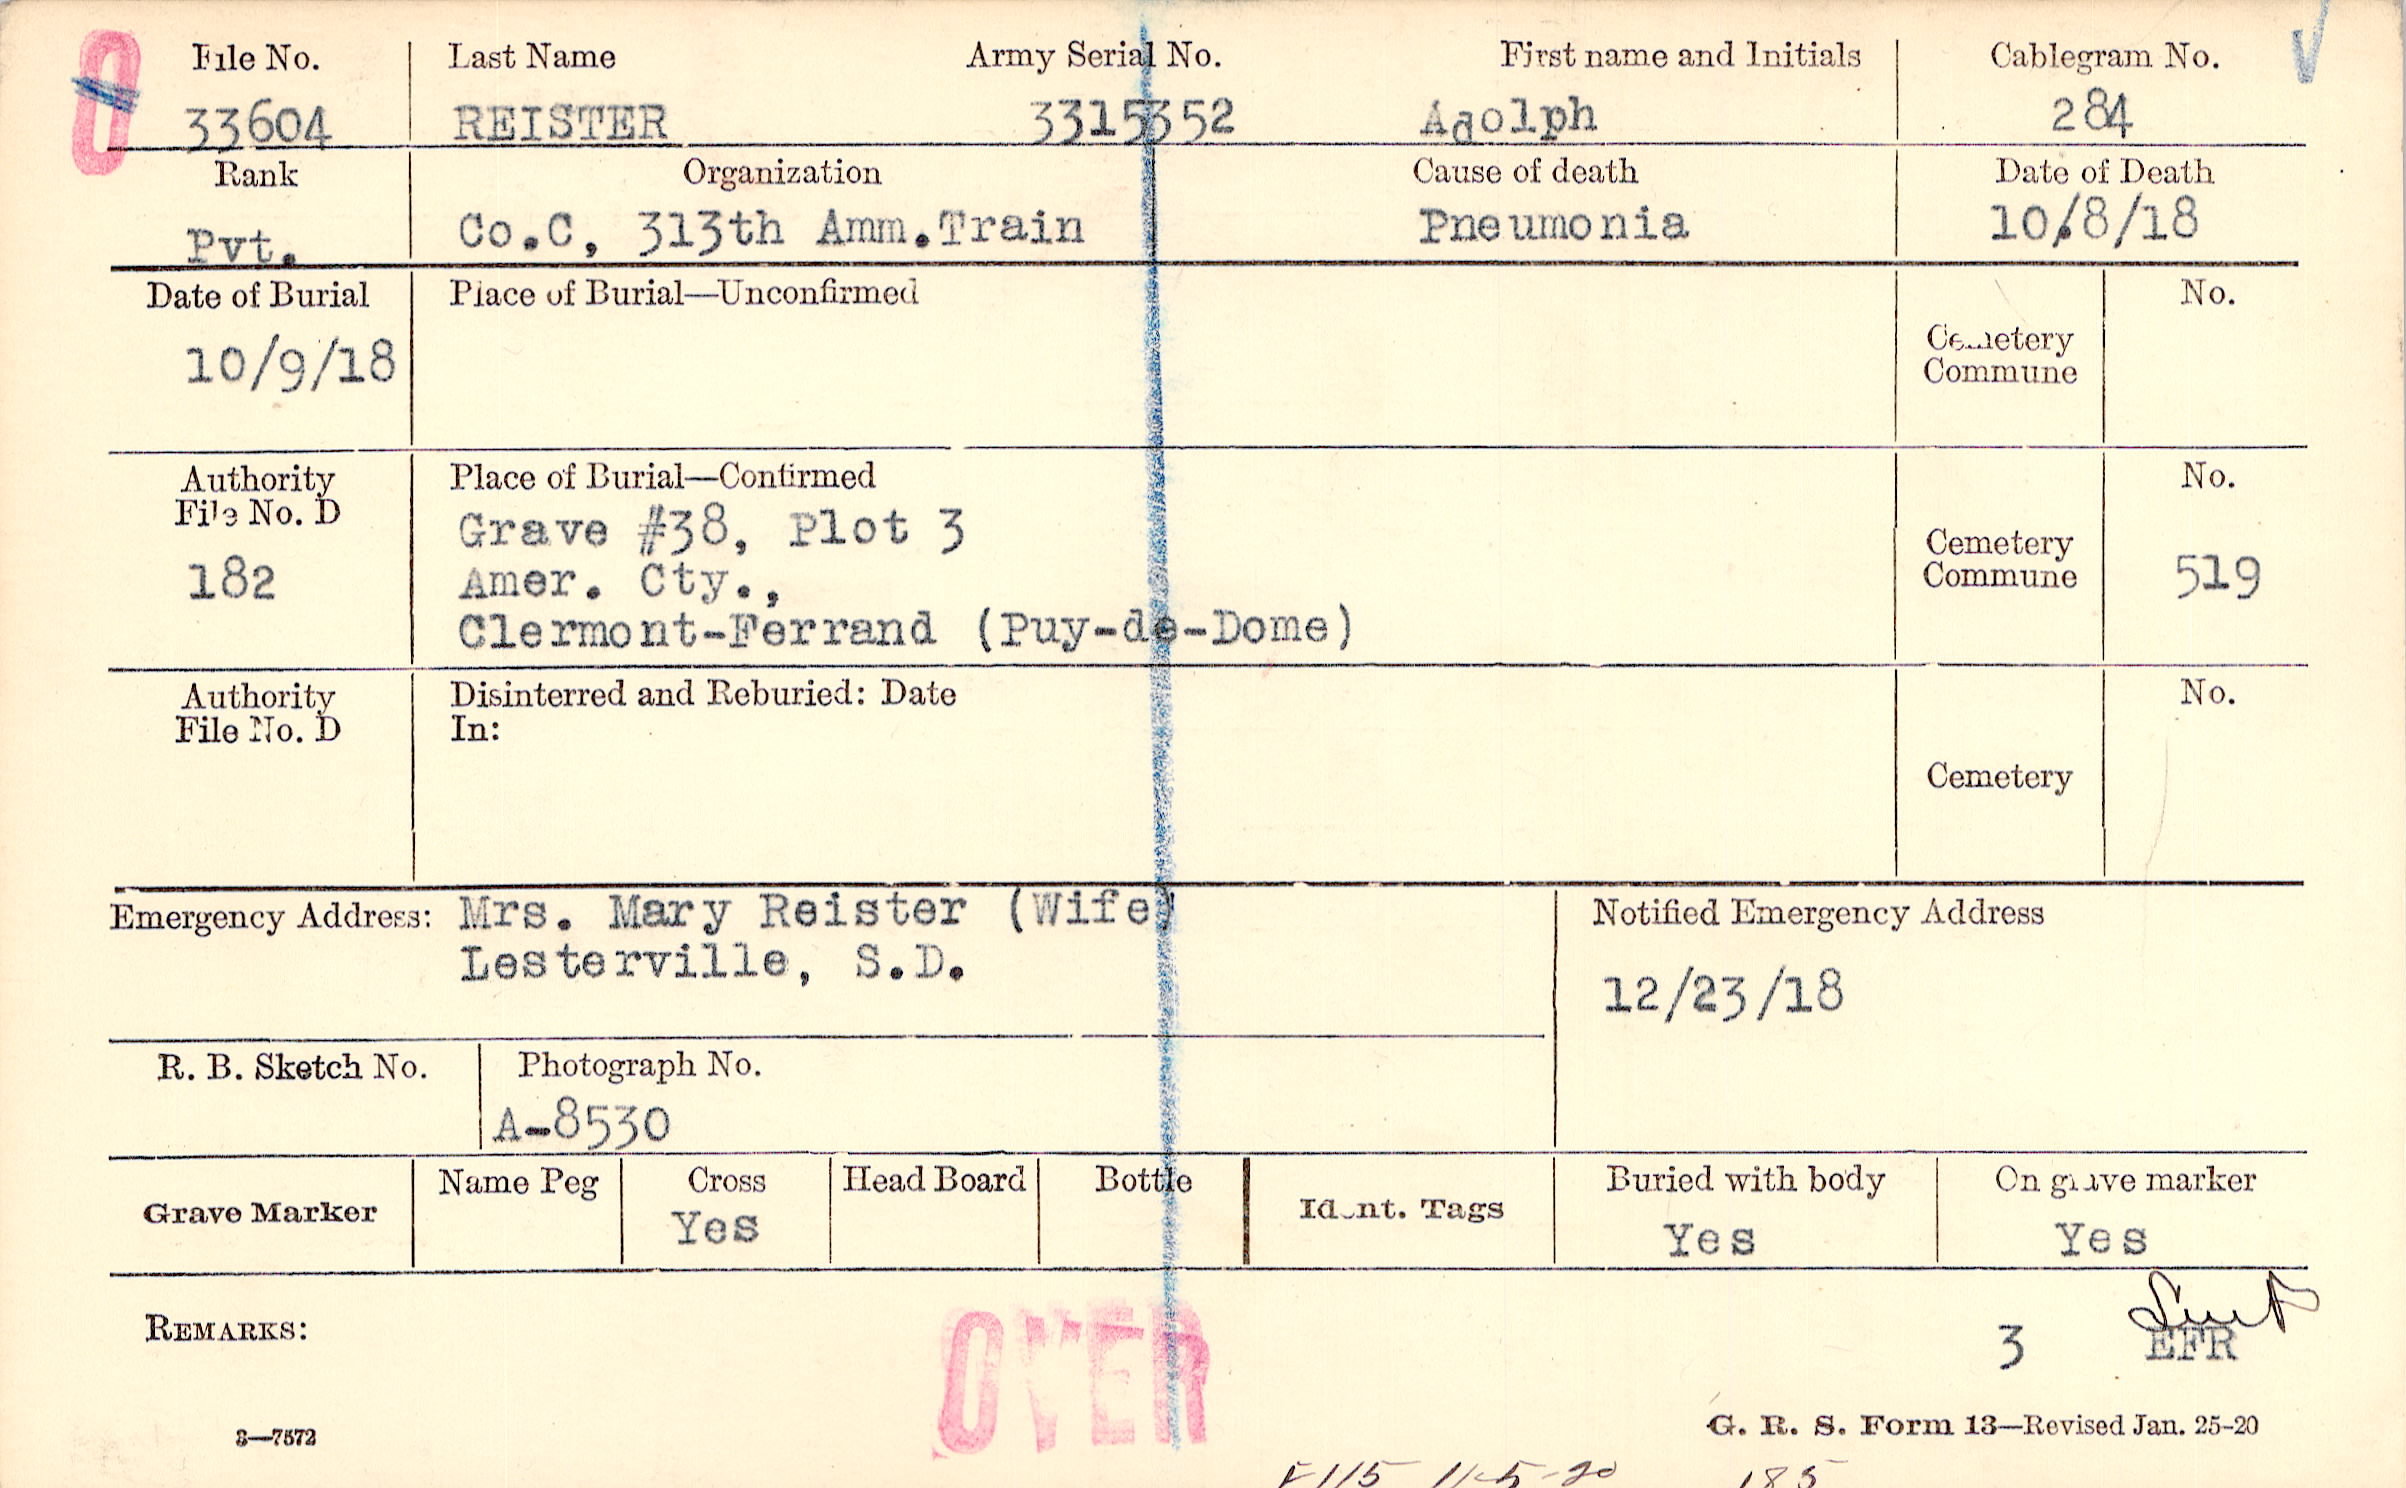 O
File No. Last Name Army Serial No. First name and Initials Cablegram No.
33604 REISTER 3315352 Adolph 284
Rank Organization Cause of death Date of Death
Pvt. Co.C, 313th Amm.Train Pneumonia 10/8/18
Date of Burial Place of Burial—Unconfirmed No.
10/9/18 Cemetery
Commune
Authority Place of Burial—Confirmed No.
File No. D
Grave #38, Plot 3
182 Amer. Cty., Cemetery
Commune 519
Clermont-Ferrand (Puy-de-Dome)
Authority Disinterred and Reburied: Date No.
File No. D In:
Cemetery
Emergency Address: Mrs. Mary Reister (Wife) Notified Emergency Address
Lesterville, S.D. 12/23/18
R. B. Sketch No. Photograph No.
A-8530
Grave Marker Name Peg Cross Head Board Bottle Ident. Tags Buried with body On grave marker
Yes Yes Yes
REMARKS: 3 EFR
OVER
3—7572 G. R. S. Form 13—Revised Jan. 25-20
115 11-5-20 185